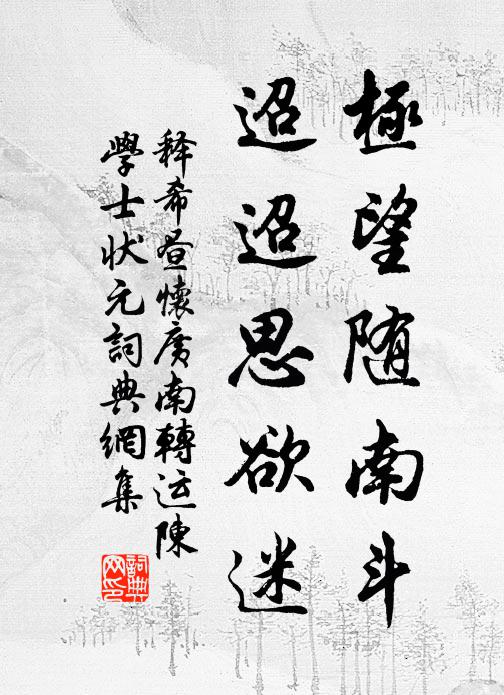 極望随南斗
迢迢思欲迷
释希昼懷廣南轉运陳
學士状元詞典網集
詞典网印